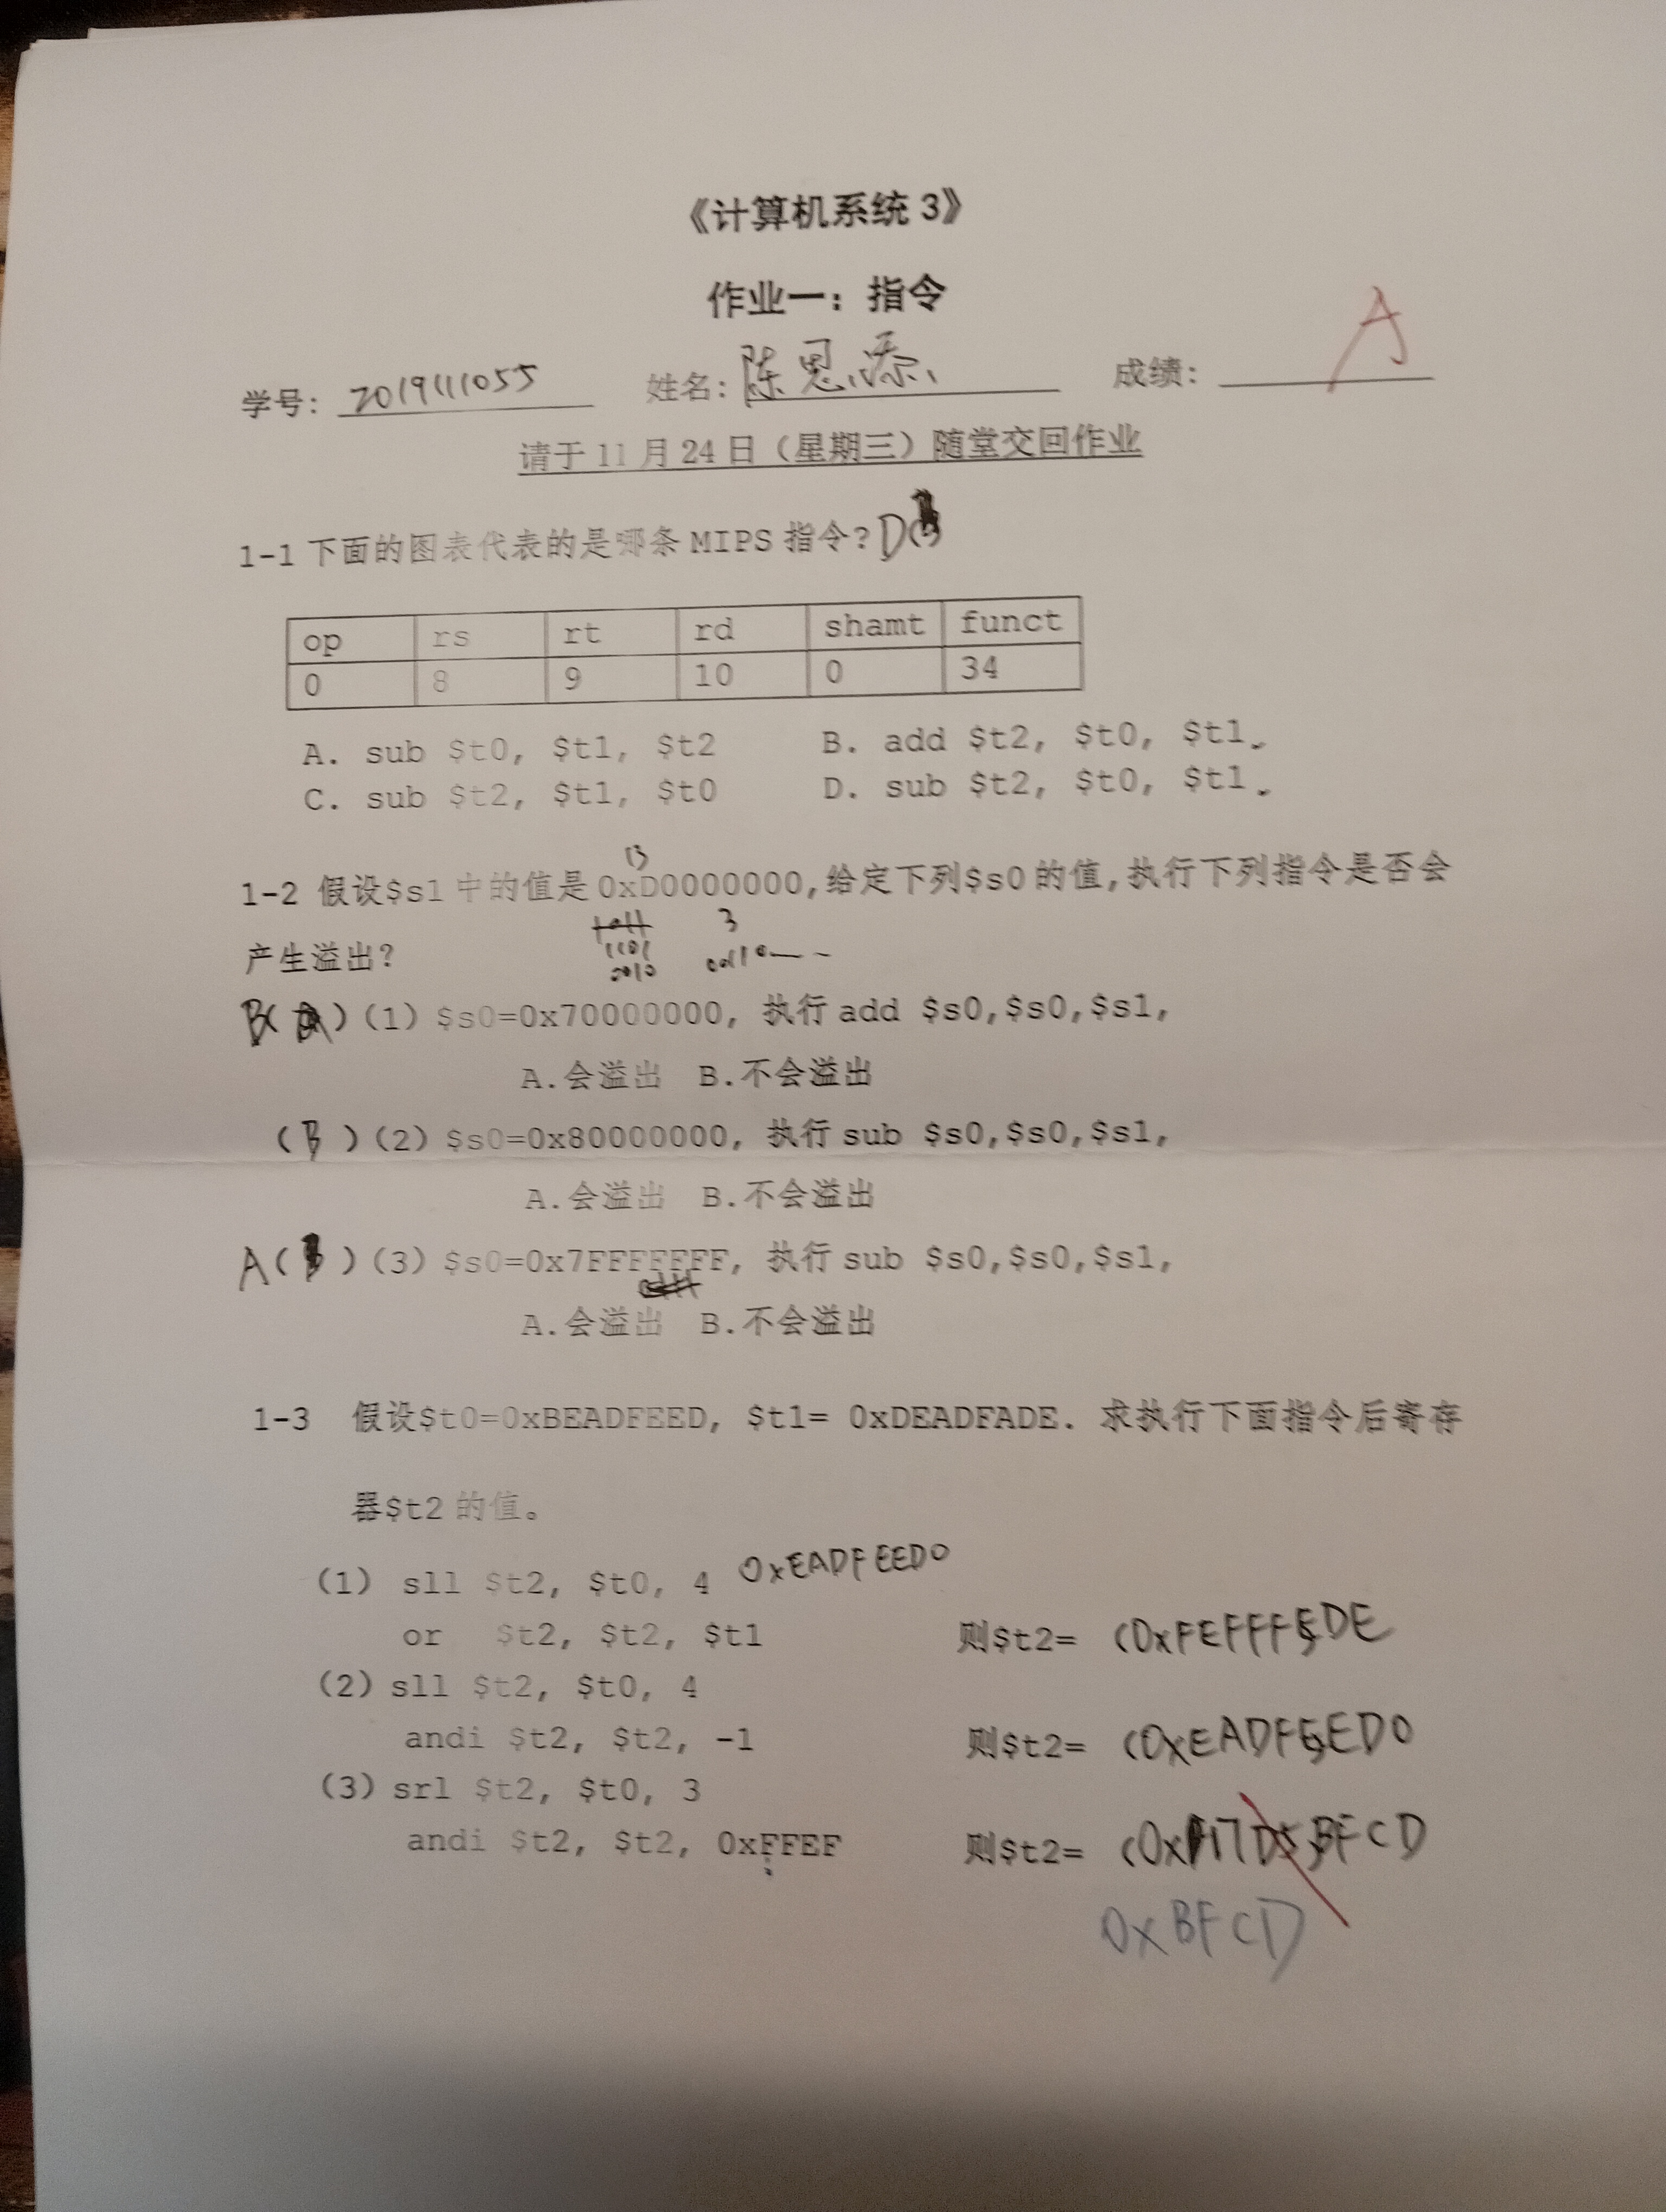 《计算机系统3》
作业一：指令
学号：2019111055 姓名：陈思添 成绩：A
请于11月24日（星期三）随堂交回作业
1-1 下面的图表代表的是哪条MIPS指令？D
op rs rt rd shamt funct
0 8 9 10 0 34
A. sub $t0, $t1, $t2 B. add $t2, $t0, $t1.
C. sub $t2, $t1, $t0 D. sub $t2, $t0, $t1.
13
1-2 假设$s1中的值是0xD0000000,给定下列$s0的值,执行下列指令是否会
产生溢出？
3
1101
0010
B( )(1) $s0=0x70000000, 执行add $s0,$s0,$s1,
A.会溢出 B.不会溢出
(B)(2) $s0=0x80000000, 执行sub $s0,$s0,$s1,
A.会溢出 B.不会溢出
A( )(3) $s0=0x7FFFFFFF, 执行sub $s0,$s0,$s1,
A.会溢出 B.不会溢出
1-3 假设$t0=0xBEADFEED, $t1= 0xDEADFADE. 求执行下面指令后寄存
器$t2的值。
(1) sll $t2, $t0, 4 0xEADFEED0
or $t2, $t2, $t1 则$t2= (0xFEFFFEDE
(2) sll $t2, $t0, 4
andi $t2, $t2, -1 则$t2= (0xEADFEED0
(3) srl $t2, $t0, 3
andi $t2, $t2, 0xFFEF 则$t2=
0xBFCD